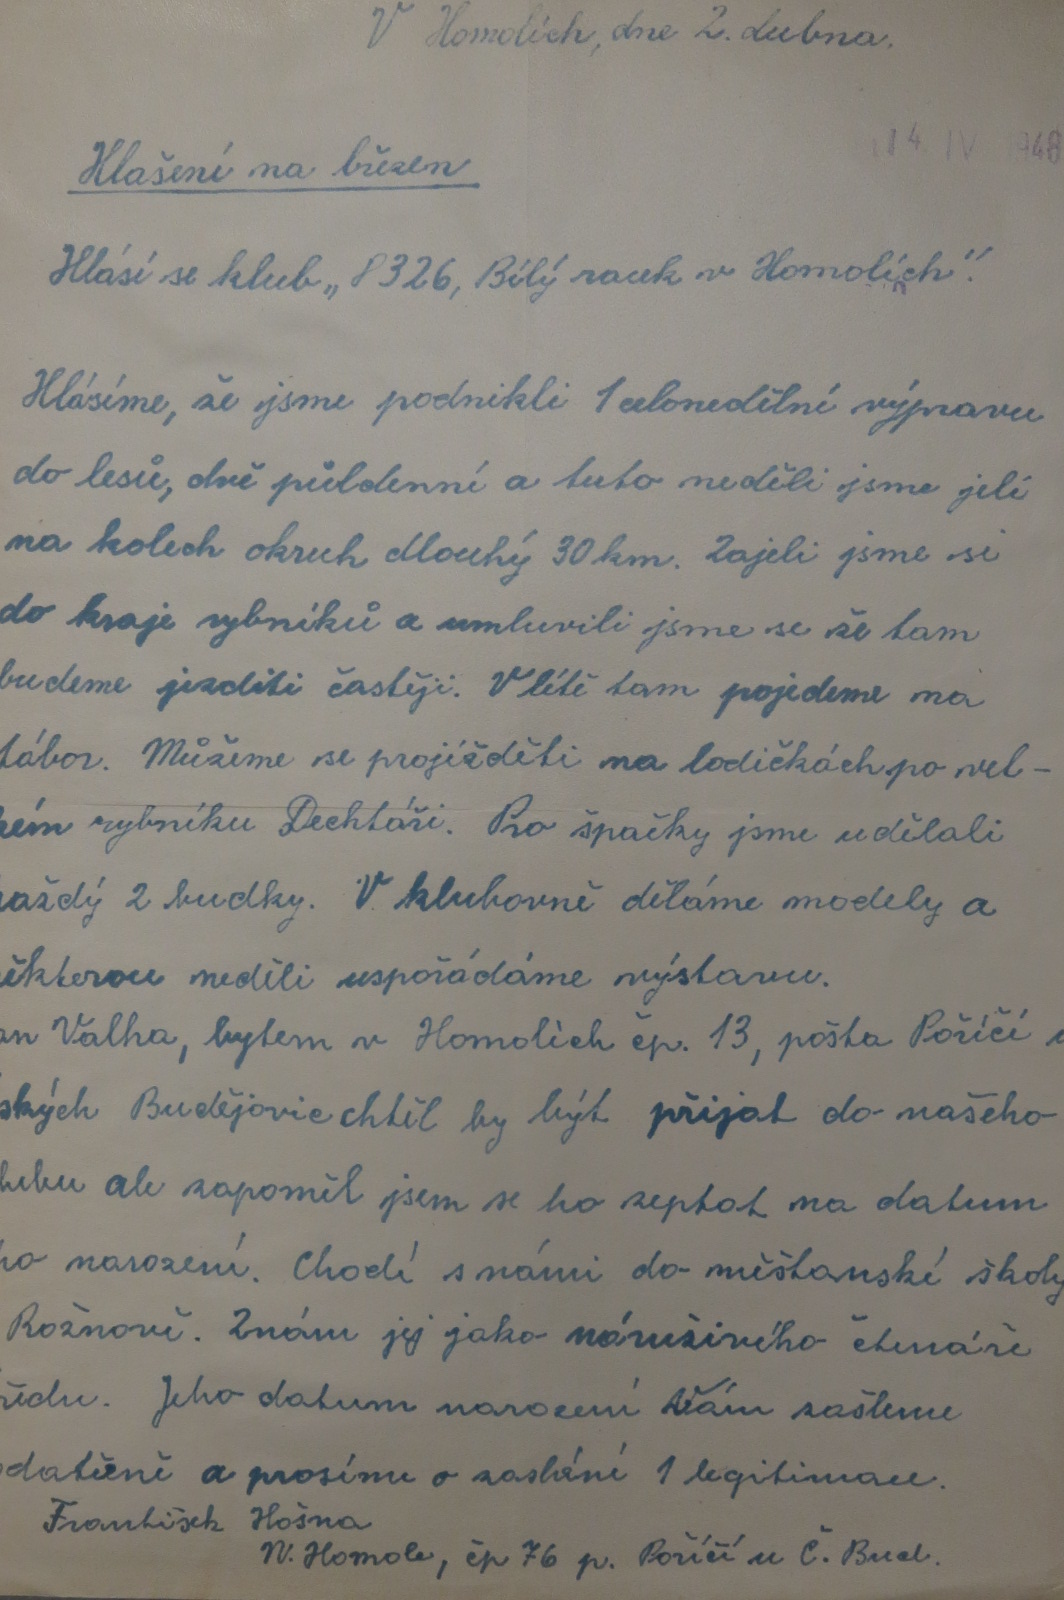 V Homolích, dne 2. dubna.
14. IV 1948
Hlašení na březen
Hlásí se klub „8326, Bílý rauk v Homolích“.
Hlásíme, že jsme podnikli 1 celonedělní výpravu
do lesů, dvě půldenní a tuto neděli jsme jeli
na kolech okruh dlouhý 30 km. Zajeli jsme si
do kraje rybníků a umluvili jsme se že tam
budeme jezditi častěji. V létě tam pojedeme na
tábor. Můžeme se projížděti na lodičkách po vel-
kém rybníku Dechtáři. Pro špačky jsme udělali
každý 2 budky. V klubovně děláme modely a
některou neděli uspořádáme výstavu.
an Valha, bytem v Homolích čp. 13, pošta Poříčí u
ských Budějovic chtěl by být přijat do našeho
lubu ale zapoměl jsem se ho zeptat na datum
ho narození. Chodí s námi do měšťanské školy
Rožnově. Znám jej jako náruživého čtenáře
ředu. Jeho datum narození Vám zašleme
odatěně a prosíme o zaslání 1 legitimace.
František Hošna
N. Homole, čp 76 p. Poříčí u Č. Bud.